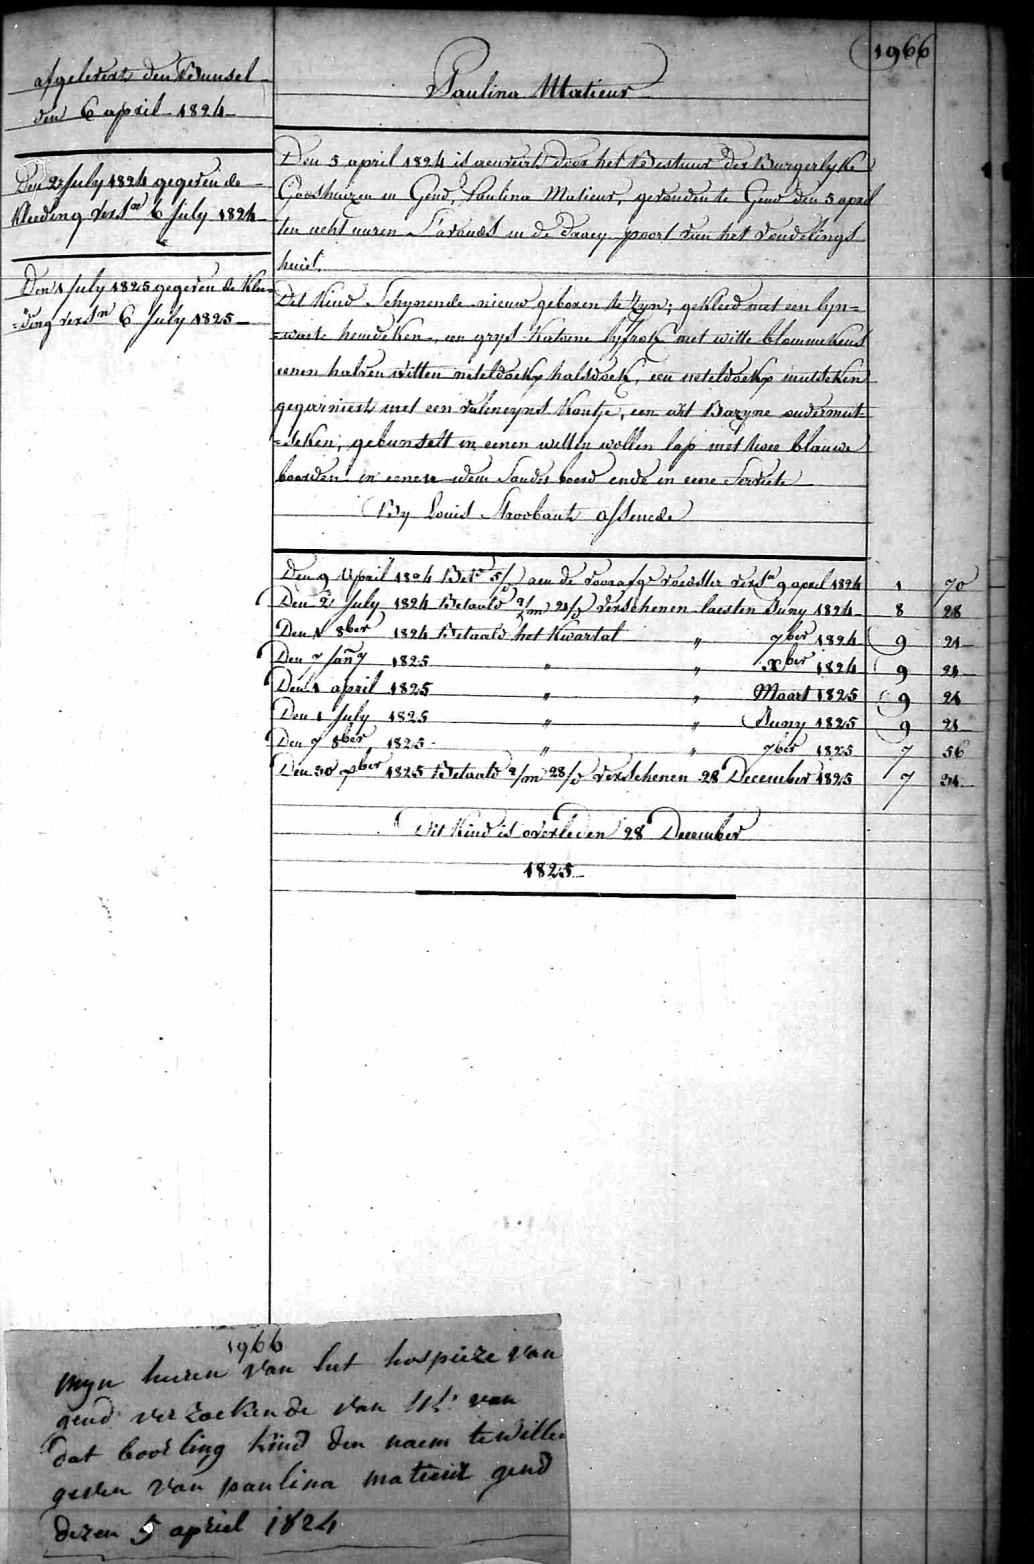 1966
afgelevert den Bunsel
den 6 april 1824
Den 2 July 1824 gegeven de
Kleeding versn 6 July 1824
Den 1 July 1825 gegeven de Klee=
=ding versn 6 July 1825
Paulina Matieur
Den 5 april 1824 is aenveirt door het Bestuur der Burgerlyke
Godshuizen in Gend, Paulina Matieur, gevonden te Gend den 5 april
ten acht uuren S'avonds in de draey poort van het vondelings
huis.
Dit Kind Schynende nieuw geboren te zyn; gekleed met een lyn=
=waete hemdeken, een grys Katoene lyfrok met witte blommekens
eenen halven witten neteldoekx halsdoek, een neteldoekx mutseken
gegarniert met een valencyns Kantje, een wit Bazyne ondermut=
=seken; gebunselt in eenen witten wollen lap met twee blauwe
boorden in eenen idem Sander boord ende in eene Serviete
By Louis Stroobant Assenede
Den 9 April 1824 Bete 5/ aen de voorafge voedster versn 9 april 1824 1 70
Den 2 July 1824 Betaeld 2/m 21/d verschenen laesten Juny 1824 8 28
Den 1 8ber 1824 Betaeld het Kwartal " 7ber 1824 9 21
Den 7 Jany 1825 " " Xber 1824 9 21
Den 1 april 1825 " " Maart 1825 9 21
Den 1 July 1825 " " Juny 1825 9 21
Den 7 8ber 1825 " " 7ber 1825 7 56
Den 30 xber 1825 Betaeld 2/m 28/d verschenen 28 December 1825 7 31
Dit Kind is overleden 28 December
1825
1966
Myn heeren van het hospicie van
gend verzoekende van UL: van
dat boorling kind den naem te wille
geven van paulina matieur gend
dezen 5 apriel 1824